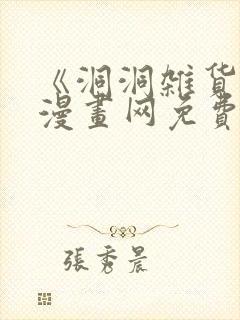 《洞洞雑货
漫畫网免費
張秀晨